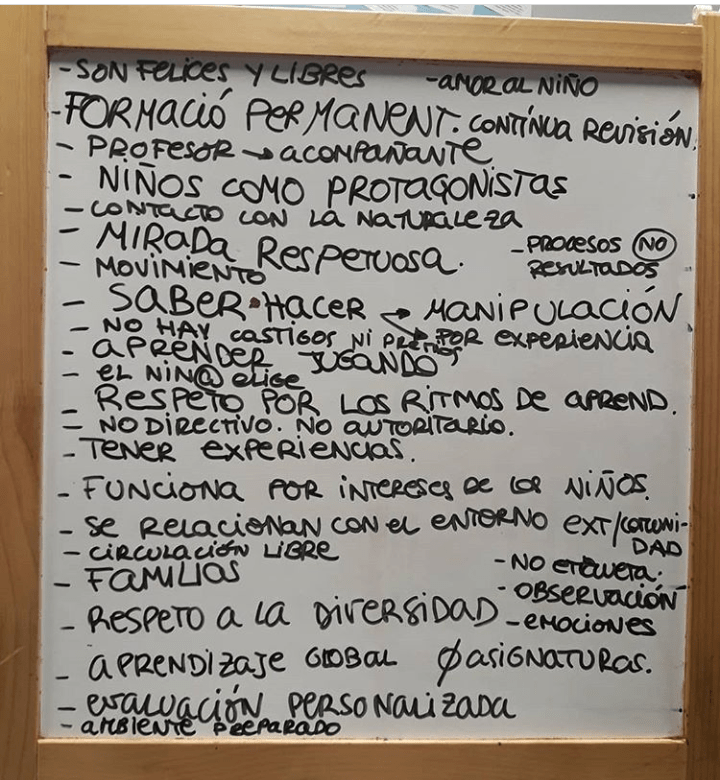 - SON FELICES Y LIBRES - AMOR AL NIÑO
- FORMACIÓ PERMANENT. CONTÍNUA REVISIÓN.
- PROFESOR → ACOMPAÑANTE
- NIÑOS COMO PROTAGONISTAS
- CONTACTO CON LA NATURALEZA
- MIRADA RESPETUOSA.
- PROCESOS NO RESULTADOS
- MOVIMIENTO
- SABER HACER → MANIPULACIÓN
→ POR EXPERIENCIA
- NO HAY CASTIGOS NI PREMIOS
- APRENDER JUGANDO
- EL NIÑ@ ELIGE
- RESPETO POR LOS RITMOS DE APREND.
- NO DIRECTIVO. NO AUTORITARIO.
- TENER EXPERIENCIAS.
- FUNCIONA POR INTERESES DE LOS NIÑOS.
- SE RELACIONAN CON EL ENTORNO EXT/COMUNI-
DAD
- CIRCULACIÓN LIBRE
- FAMILIAS
- NO ETIQUETA.
- OBSERVACIÓN
- RESPETO A LA DIVERSIDAD - EMOCIONES
- APRENDIZAJE GLOBAL Ø ASIGNATURAS.
- EVALUACIÓN PERSONALIZADA
- AMBIENTE PREPARADO